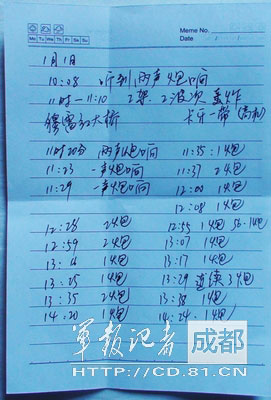 Memo No.
Mo Tu We Th Fr Sa Su
Date
1月1日
10:08 听到两声炮响
11时-11:10 2架.2波次 轰炸
大桥 卡子一带
11时20分 两声炮响 11:35:1炮
11:23 一声炮响 11:37 2炮
11:29 一声炮响 12:00 1炮
12:08 1炮
12:28 2炮 12:55 1炮 56-1炮
12:59 2炮 13:07 1炮
13:16 1炮 13:17 1炮
13:25 1炮 13:29 连续3炮
13:35 2炮 13:38 1炮
14:20 1炮 14:24:1炮
军报记者 成都
HTTP://CD.81.CN